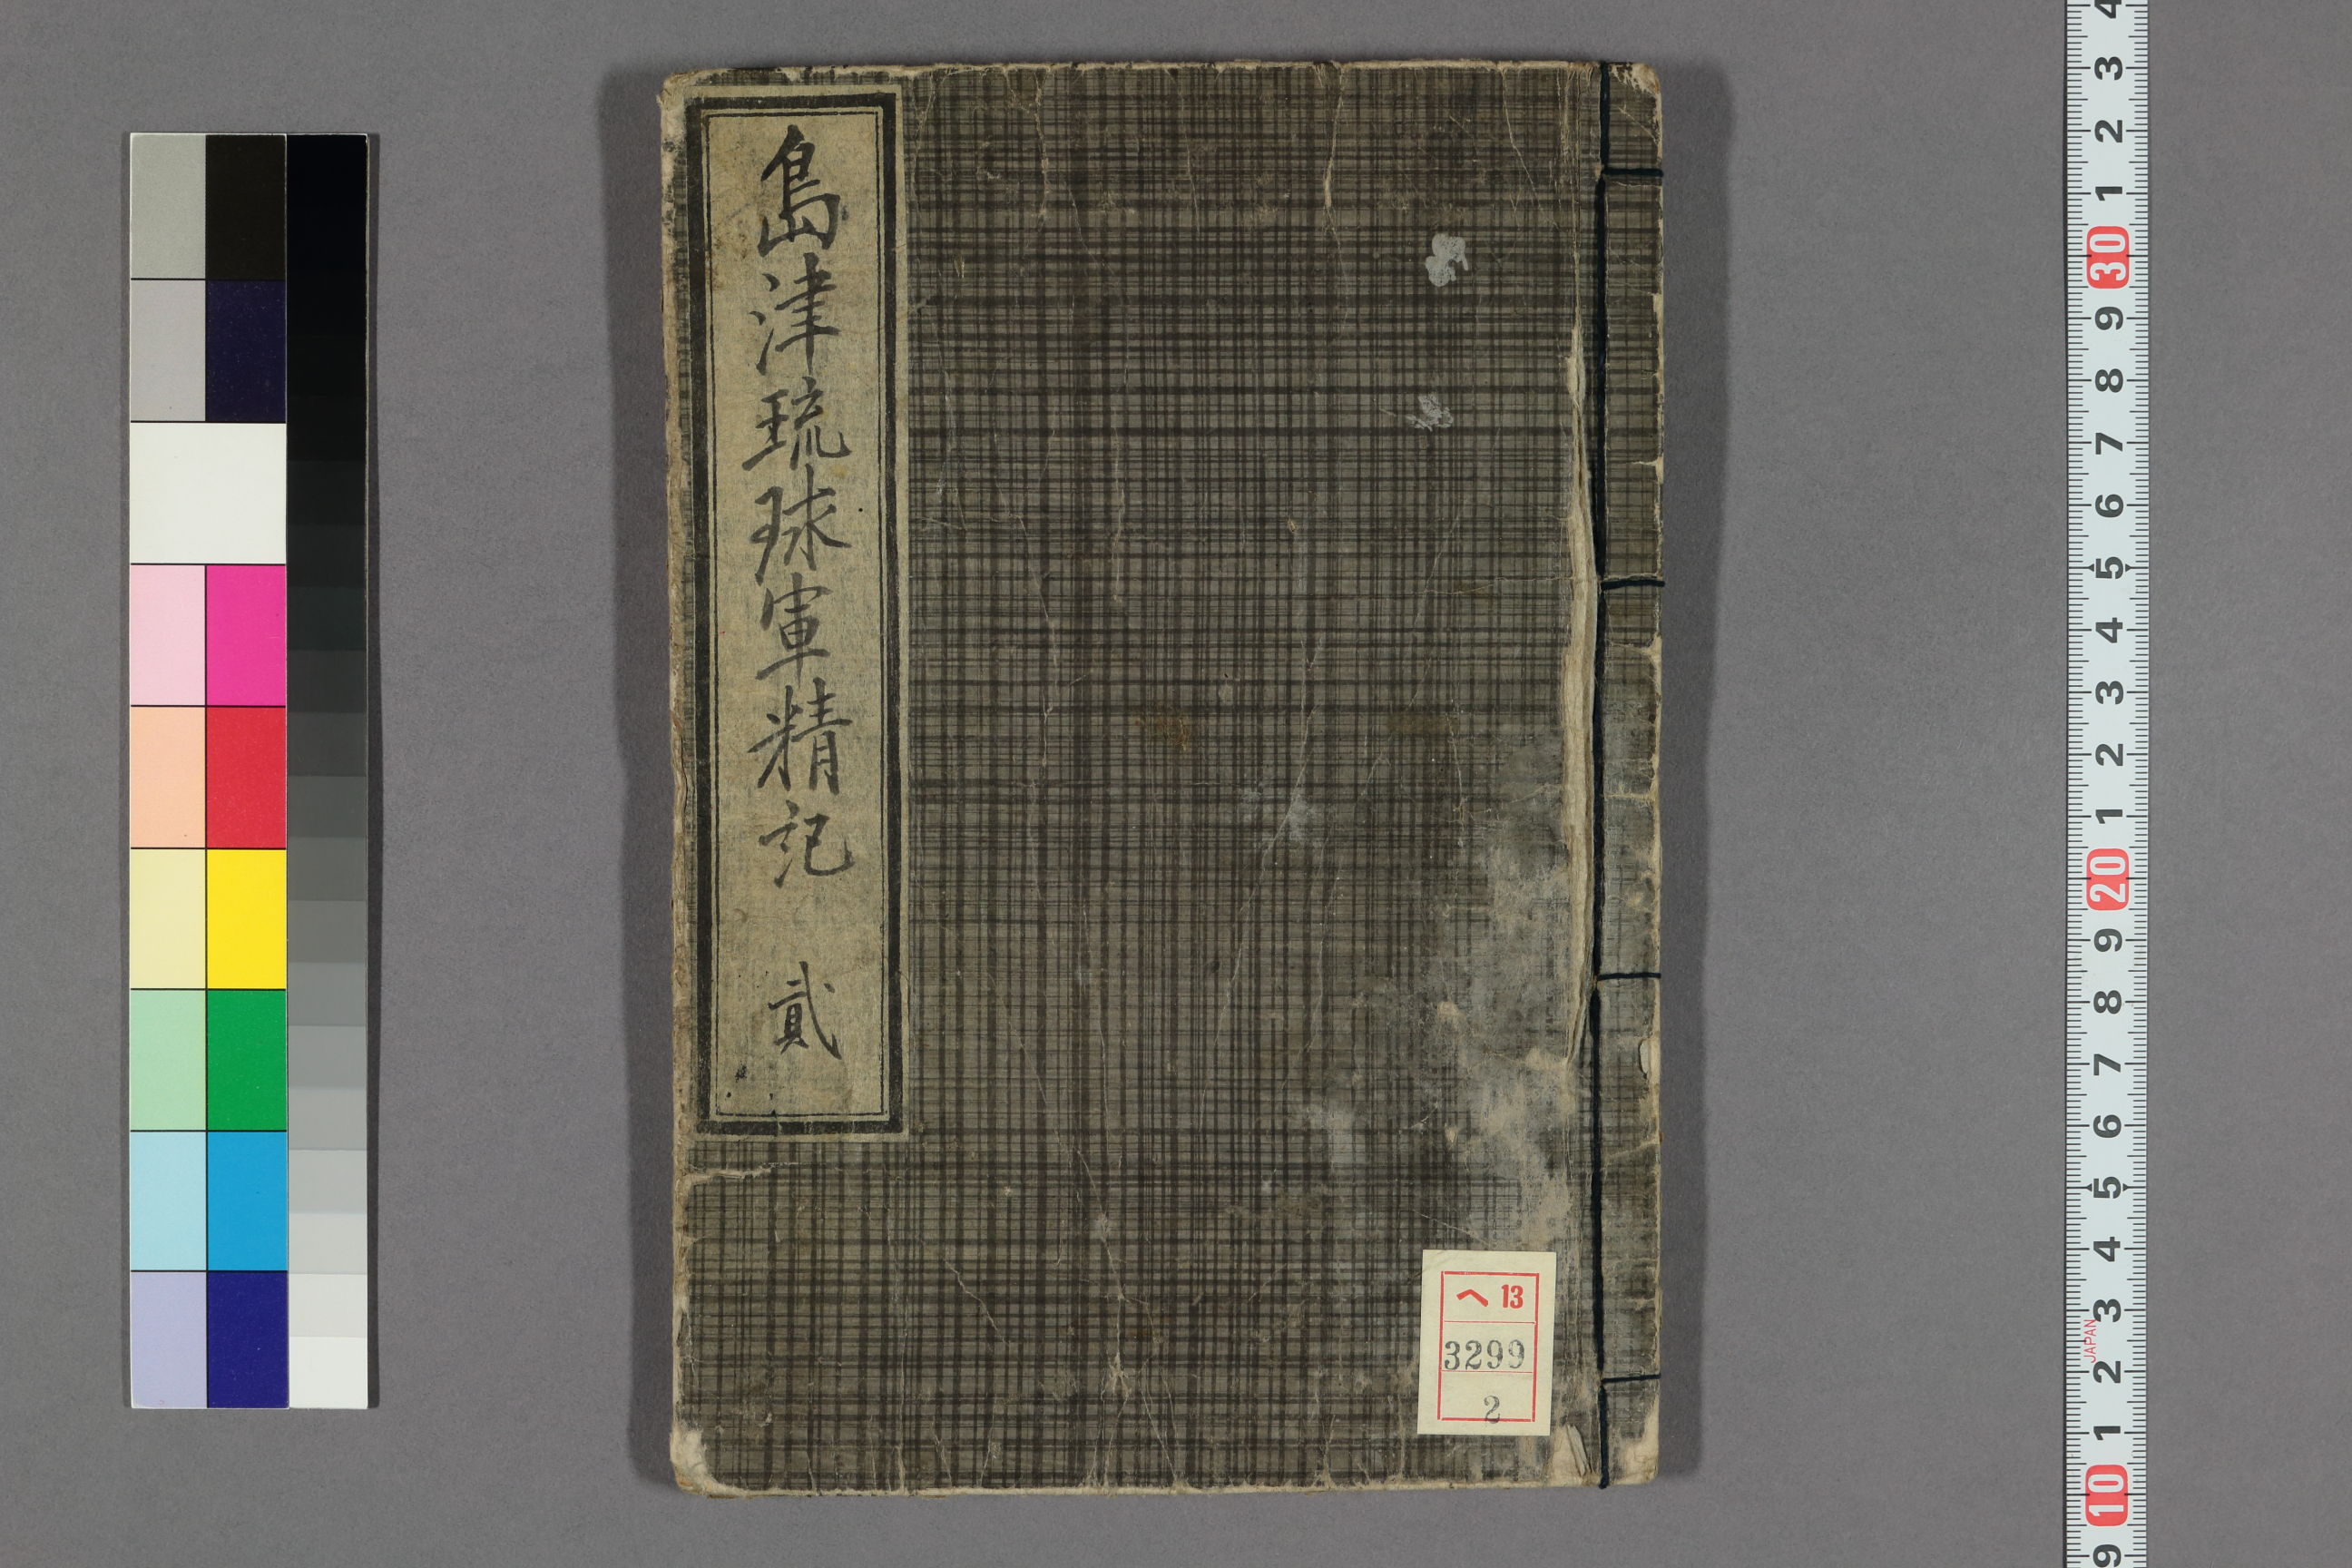 島津琉球軍精記 貳
へ 13
3299
2
4
3
2
1
30
9
8
7
6
5
4
3
2
1
20
9
8
7
6
5
4
3
2
JAPAN
1
10
9